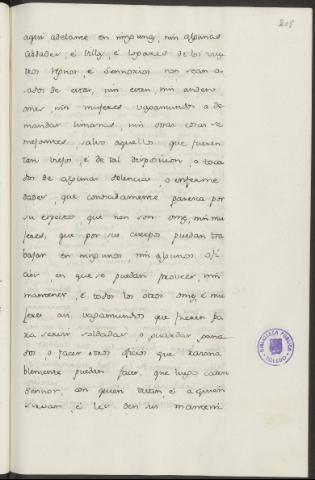 205
aqui adelante en ningunas, nin algunas
Cibdades, é Villas, é Logares de los vues
tros Regnos, é Sennorios non sean o
sados de estar, nin esten, nin anden
omes, nin mugeres vagamundos a de
mandar limosnas, nin otras cosas se
mejantes, salvo aquellos que fueren
tan viejos, é de tal disposicion, o toca
dos de algunas dolencias, o enferme
dades, que conoscidamente paresca por
su aspecto, que non son omes, nin mu
geres, que por sus cuerpos puedan tra
bajar en ningunos, nin algunos ofi
cios, en que se puedan proveer, nin
mantener, é todos los otros omes, é mu
geres asi vagamundos que fueren pa
ra servir soldadas o guardar gana
dos o facer otros oficios que razona
blemente puedan facer, que luego caten
Sennor, con quien vivan, é a quien
sirvan, é les den sus manteni
BIBLIOTECA PUBLICA
TOLEDO